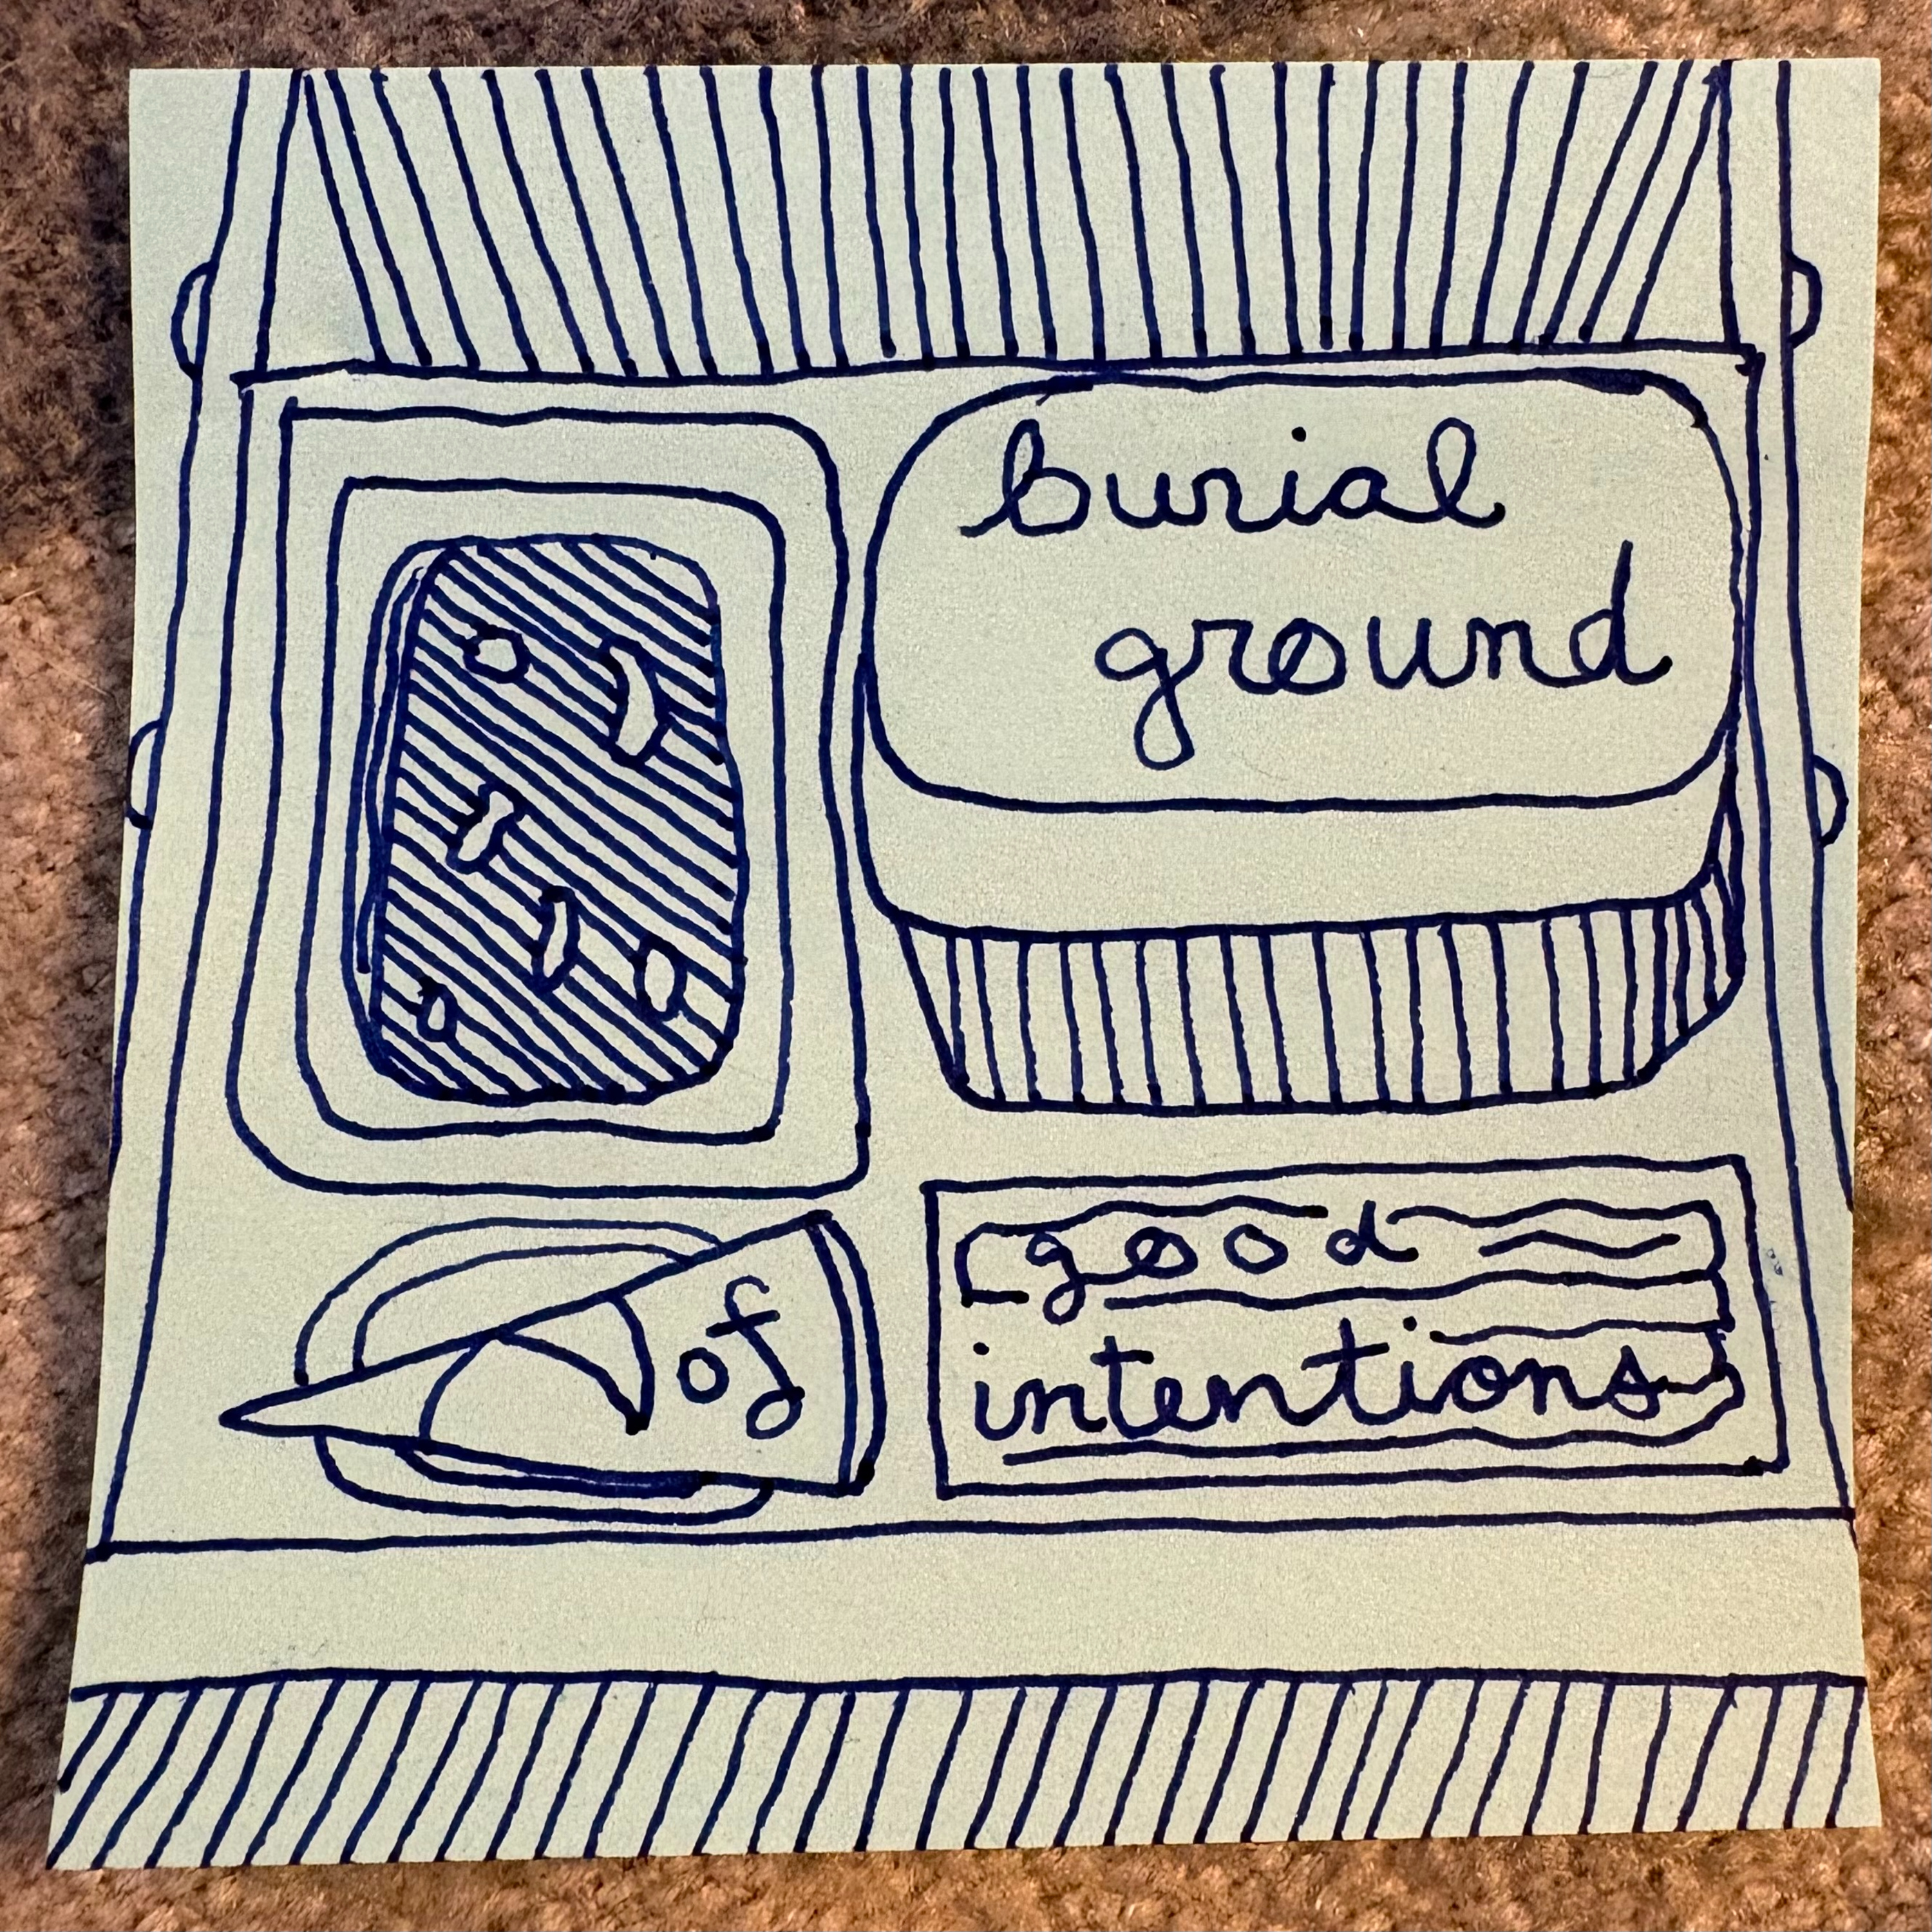 burial
ground
of
good
intentions